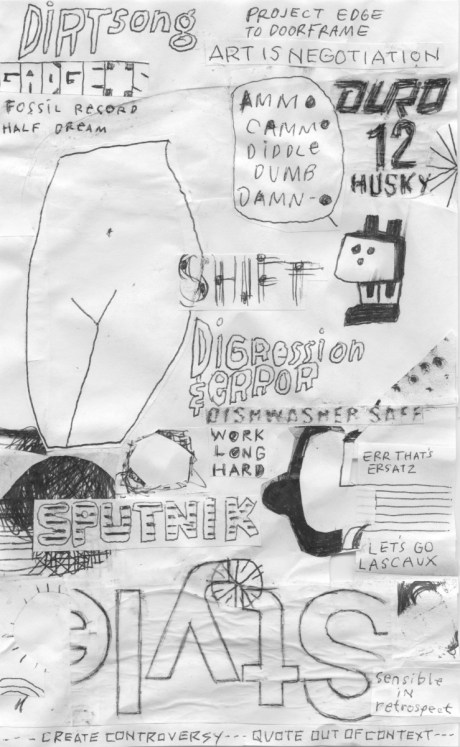 DIRTSONG
PROJECT EDGE
TO DOORFRAME
ART IS NEGOTIATION
FOSSIL RECORD
HALF DREAM
AMMO
CAMMO
DIDDLE
DUMB
DAMN-
DURO
12
HUSKY
SHIFT
DIGRESSION
& ERROR
DISHWASHER SAFE
WORK
LONG
HARD
ERR THAT'S
ERSATZ
SPUTNIK
LET'S GO
LASCAUX
style
sensible
IN
retrospect
---- CREATE CONTROVERSY--- QUOTE OUT OF CONTEXT---